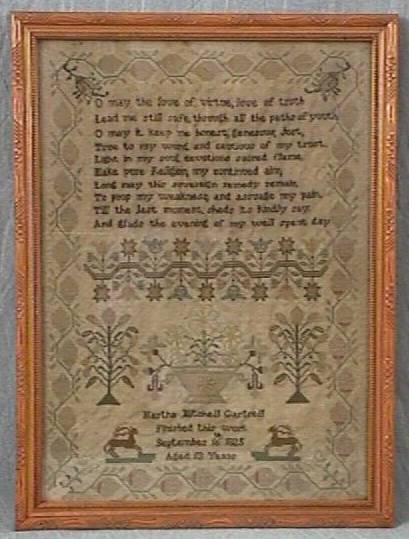 O may the love of virtue, love of truth
Lead me still safe, through all the paths of youth
O may it keep me honest, generous, just,
True to my word, and cautious of my trust.
Light in my soul devotions sacred flame,
Make pure Religion, my continued aim,
Long may this sovereign remedy remain,
To prop my weakness, and assuage my pain.
Till the last moment, sheds its kindly ray
And glads the evening of my well spent day
Martha Mitchell
Finished this Work
September 1825
Aged Years